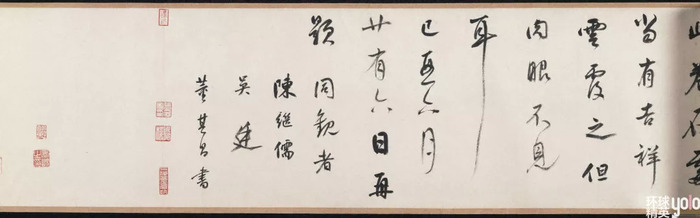 此卷在處
當有吉祥
雲覆之但
肉眼不見
耳
己亥六月
廿有六日再
題 同觀者
陳繼儒
吳廷
董其昌書
环球
精英 yolo